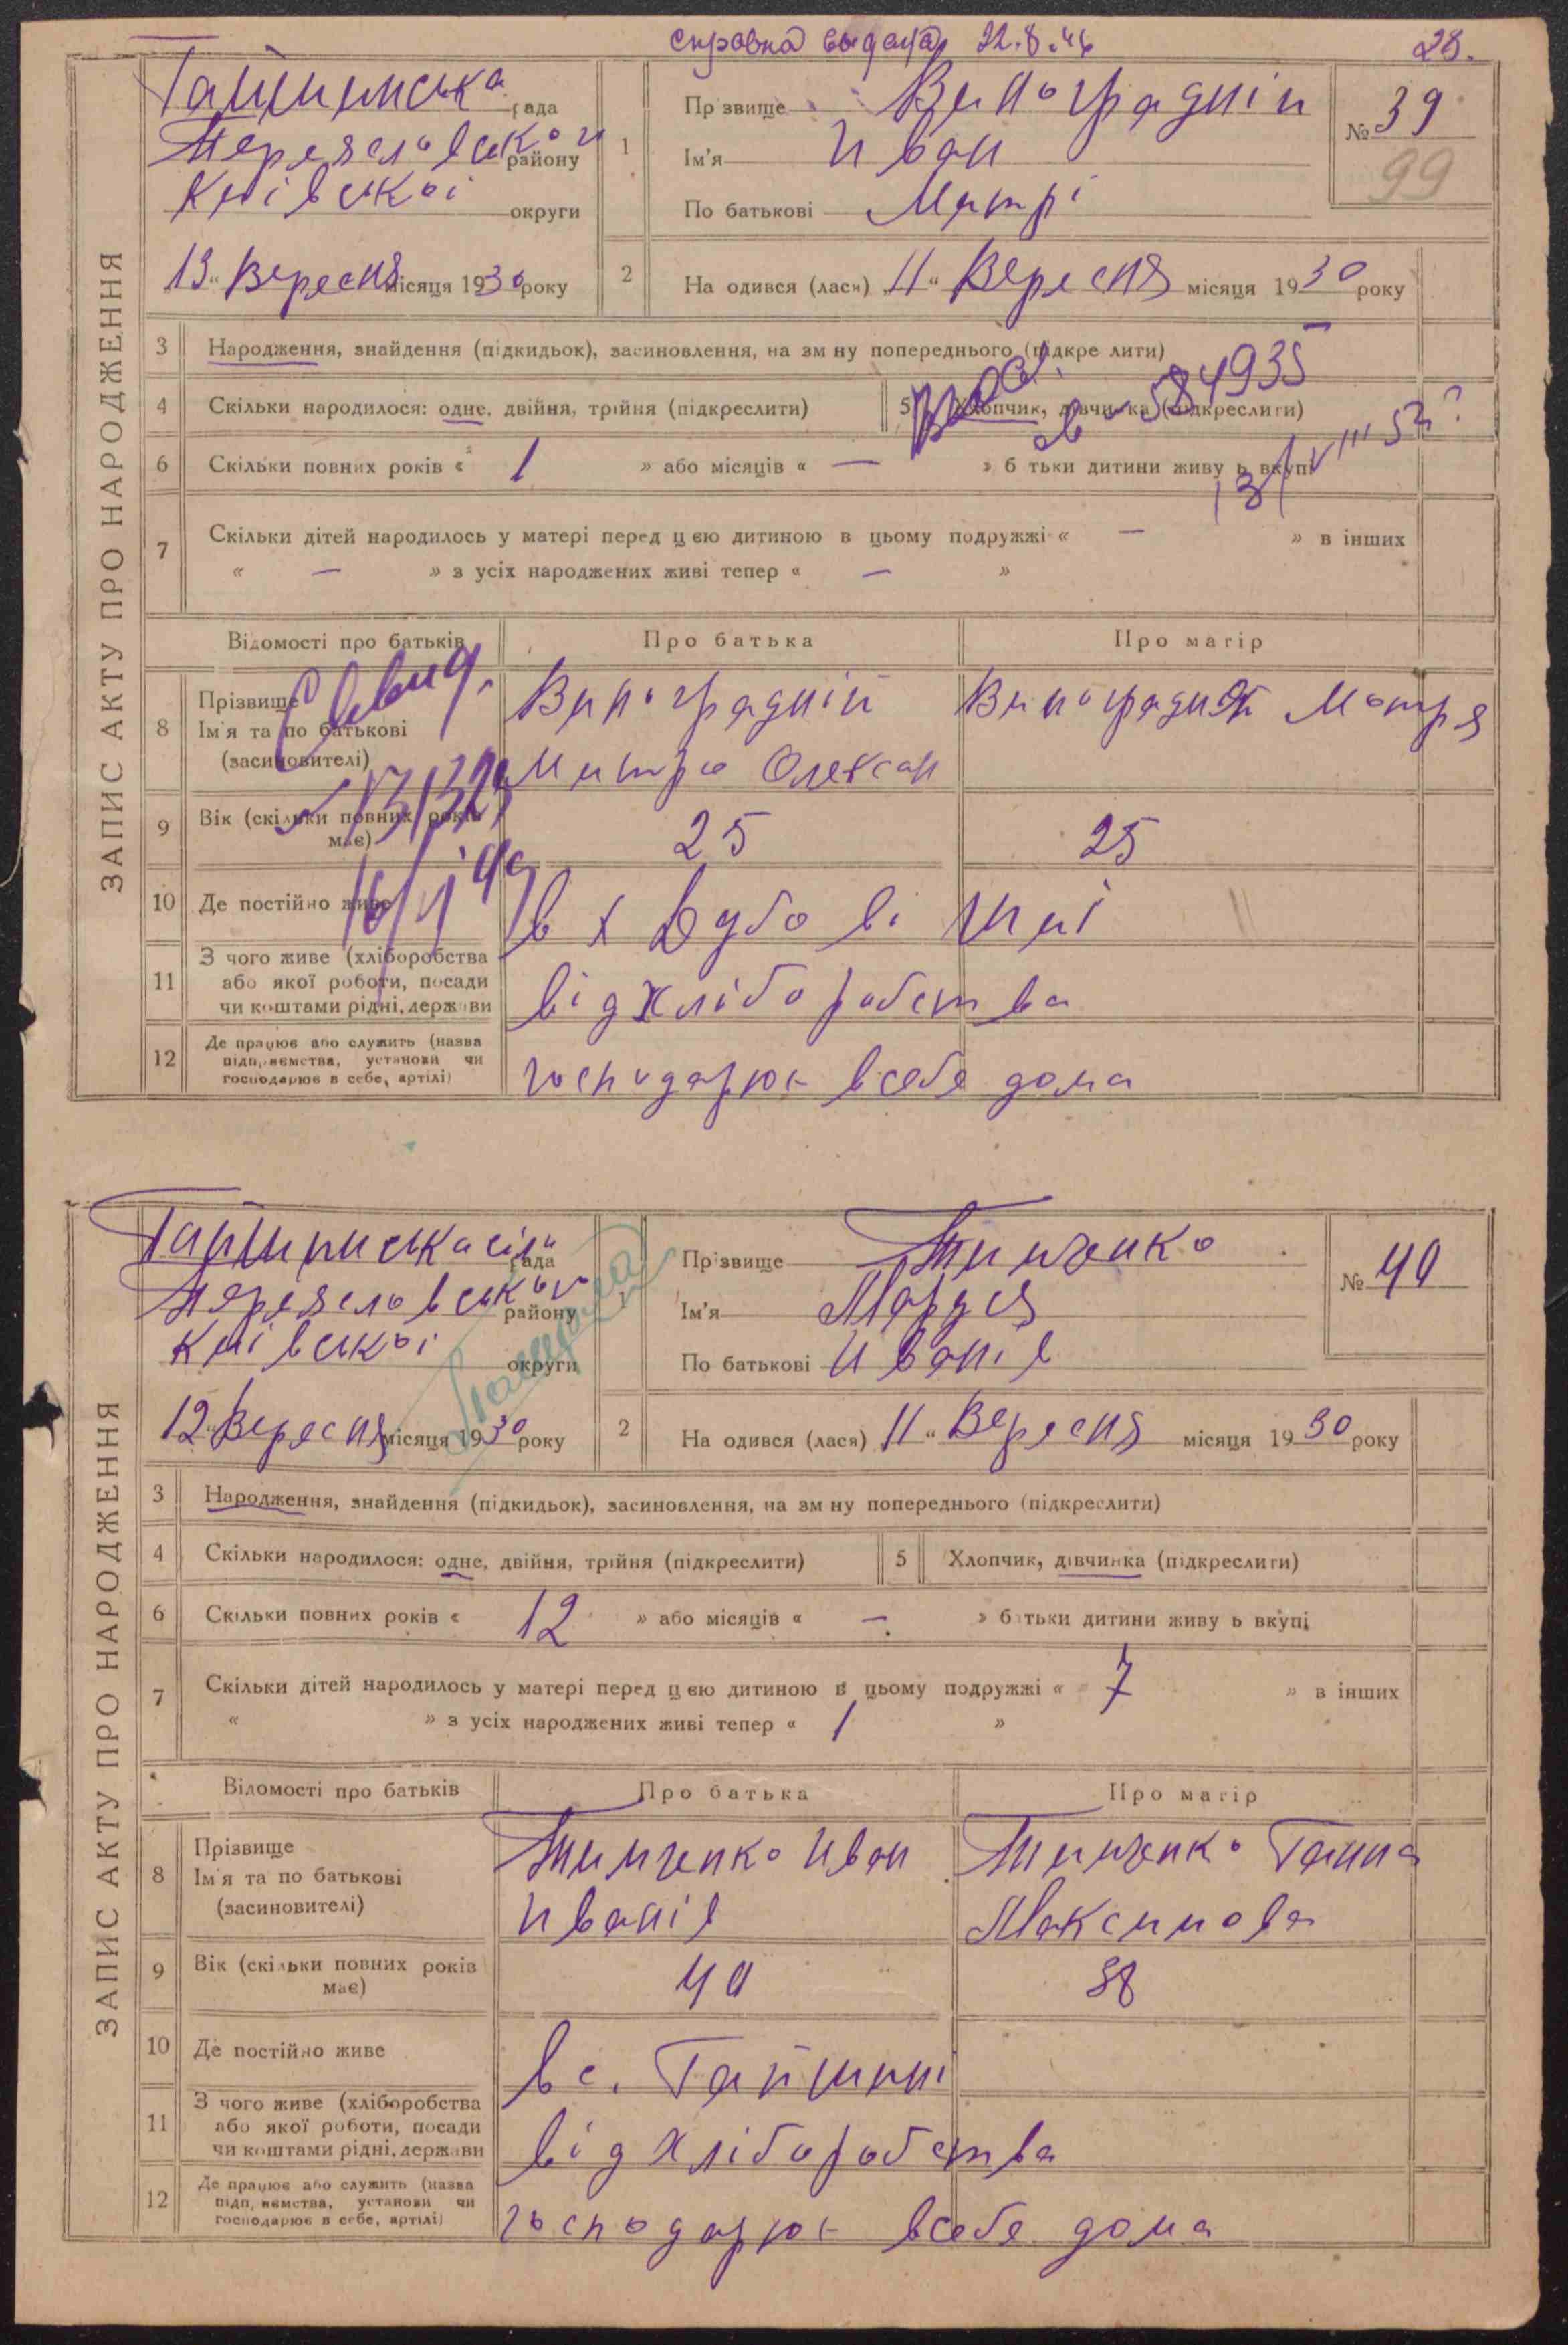 справка выдана 22.8.46
28.
ЗАПИС АКТУ ПРО НАРОДЖЕННЯ
Гайшинська рада
Переяславського району
Київської округи
13 " Вересня місяця 1930 року
1
Прізвище Виноградній
Ім'я Иван
По батькові Митрі
№ 39
99
2 На одився (лася) 11 " Вересня місяця 1930 року
3 Народження, знайдення (підкидьок), засиновлення, на зм ну попереднього (підкре лити)
4 Скільки народилося: одне, двійня, трійня (підкреслити)
5 Хлопчик, дівчинка (підкреслити)
584935
6 Скільки повних років « 1 » або місяців « — » б тьки дитини живу ь вкупі
31/VIII 52
7 Скільки дітей народилось у матері перед ц ею дитиною в цьому подружжі « — » в інших
« — » з усіх народжених живі тепер « — »
Відомості про батьків
Про батька
Про матір
8 Прізвище
Ім'я та по батькові
(засиновителі)
Виноградній
Митро Олексан
Виноградня Мотря
Свид.
9 Вік (скільки повних років має)
25
25
10 Де постійно живе
в х Дубо ві
11 З чого живе (хліборобства
або якої роботи, посади
чи коштами рідні, держави
від хліборобства
12 Де працює або служить (назва
підприємства, установи чи
господарює в себе, артілі)
господарює всебе дома
ЗАПИС АКТУ ПРО НАРОДЖЕННЯ
Гайшинська сіль рада
Переяславського району
Київської округи
12 " Вересня місяця 1930 року
1
Прізвище Тимченко
Ім'я Марія
По батькові Иванів
№ 40
2 На одився (лася) 11 " Вересня місяця 1930 року
3 Народження, знайдення (підкидьок), засиновлення, на зм ну попереднього (підкреслити)
4 Скільки народилося: одне, двійня, трійня (підкреслити)
5 Хлопчик, дівчинка (підкреслити)
6 Скільки повних років « 12 » або місяців « — » б тьки дитини живу ь вкупі
7 Скільки дітей народилось у матері перед ц ею дитиною в цьому подружжі « 7 » в інших
« » з усіх народжених живі тепер « 1 »
Відомості про батьків
Про батька
Про матір
8 Прізвище
Ім'я та по батькові
(засиновителі)
Тимченко Иван
Иванів
Тимченко Ганна
Максимова
9 Вік (скільки повних років має)
40
38
10 Де постійно живе
в с. Гайшині
11 З чого живе (хліборобства
або якої роботи, посади
чи коштами рідні, держави
від хліборобства
12 Де працює або служить (назва
підприємства, установи чи
господарює в себе, артілі)
господарює всебе дома